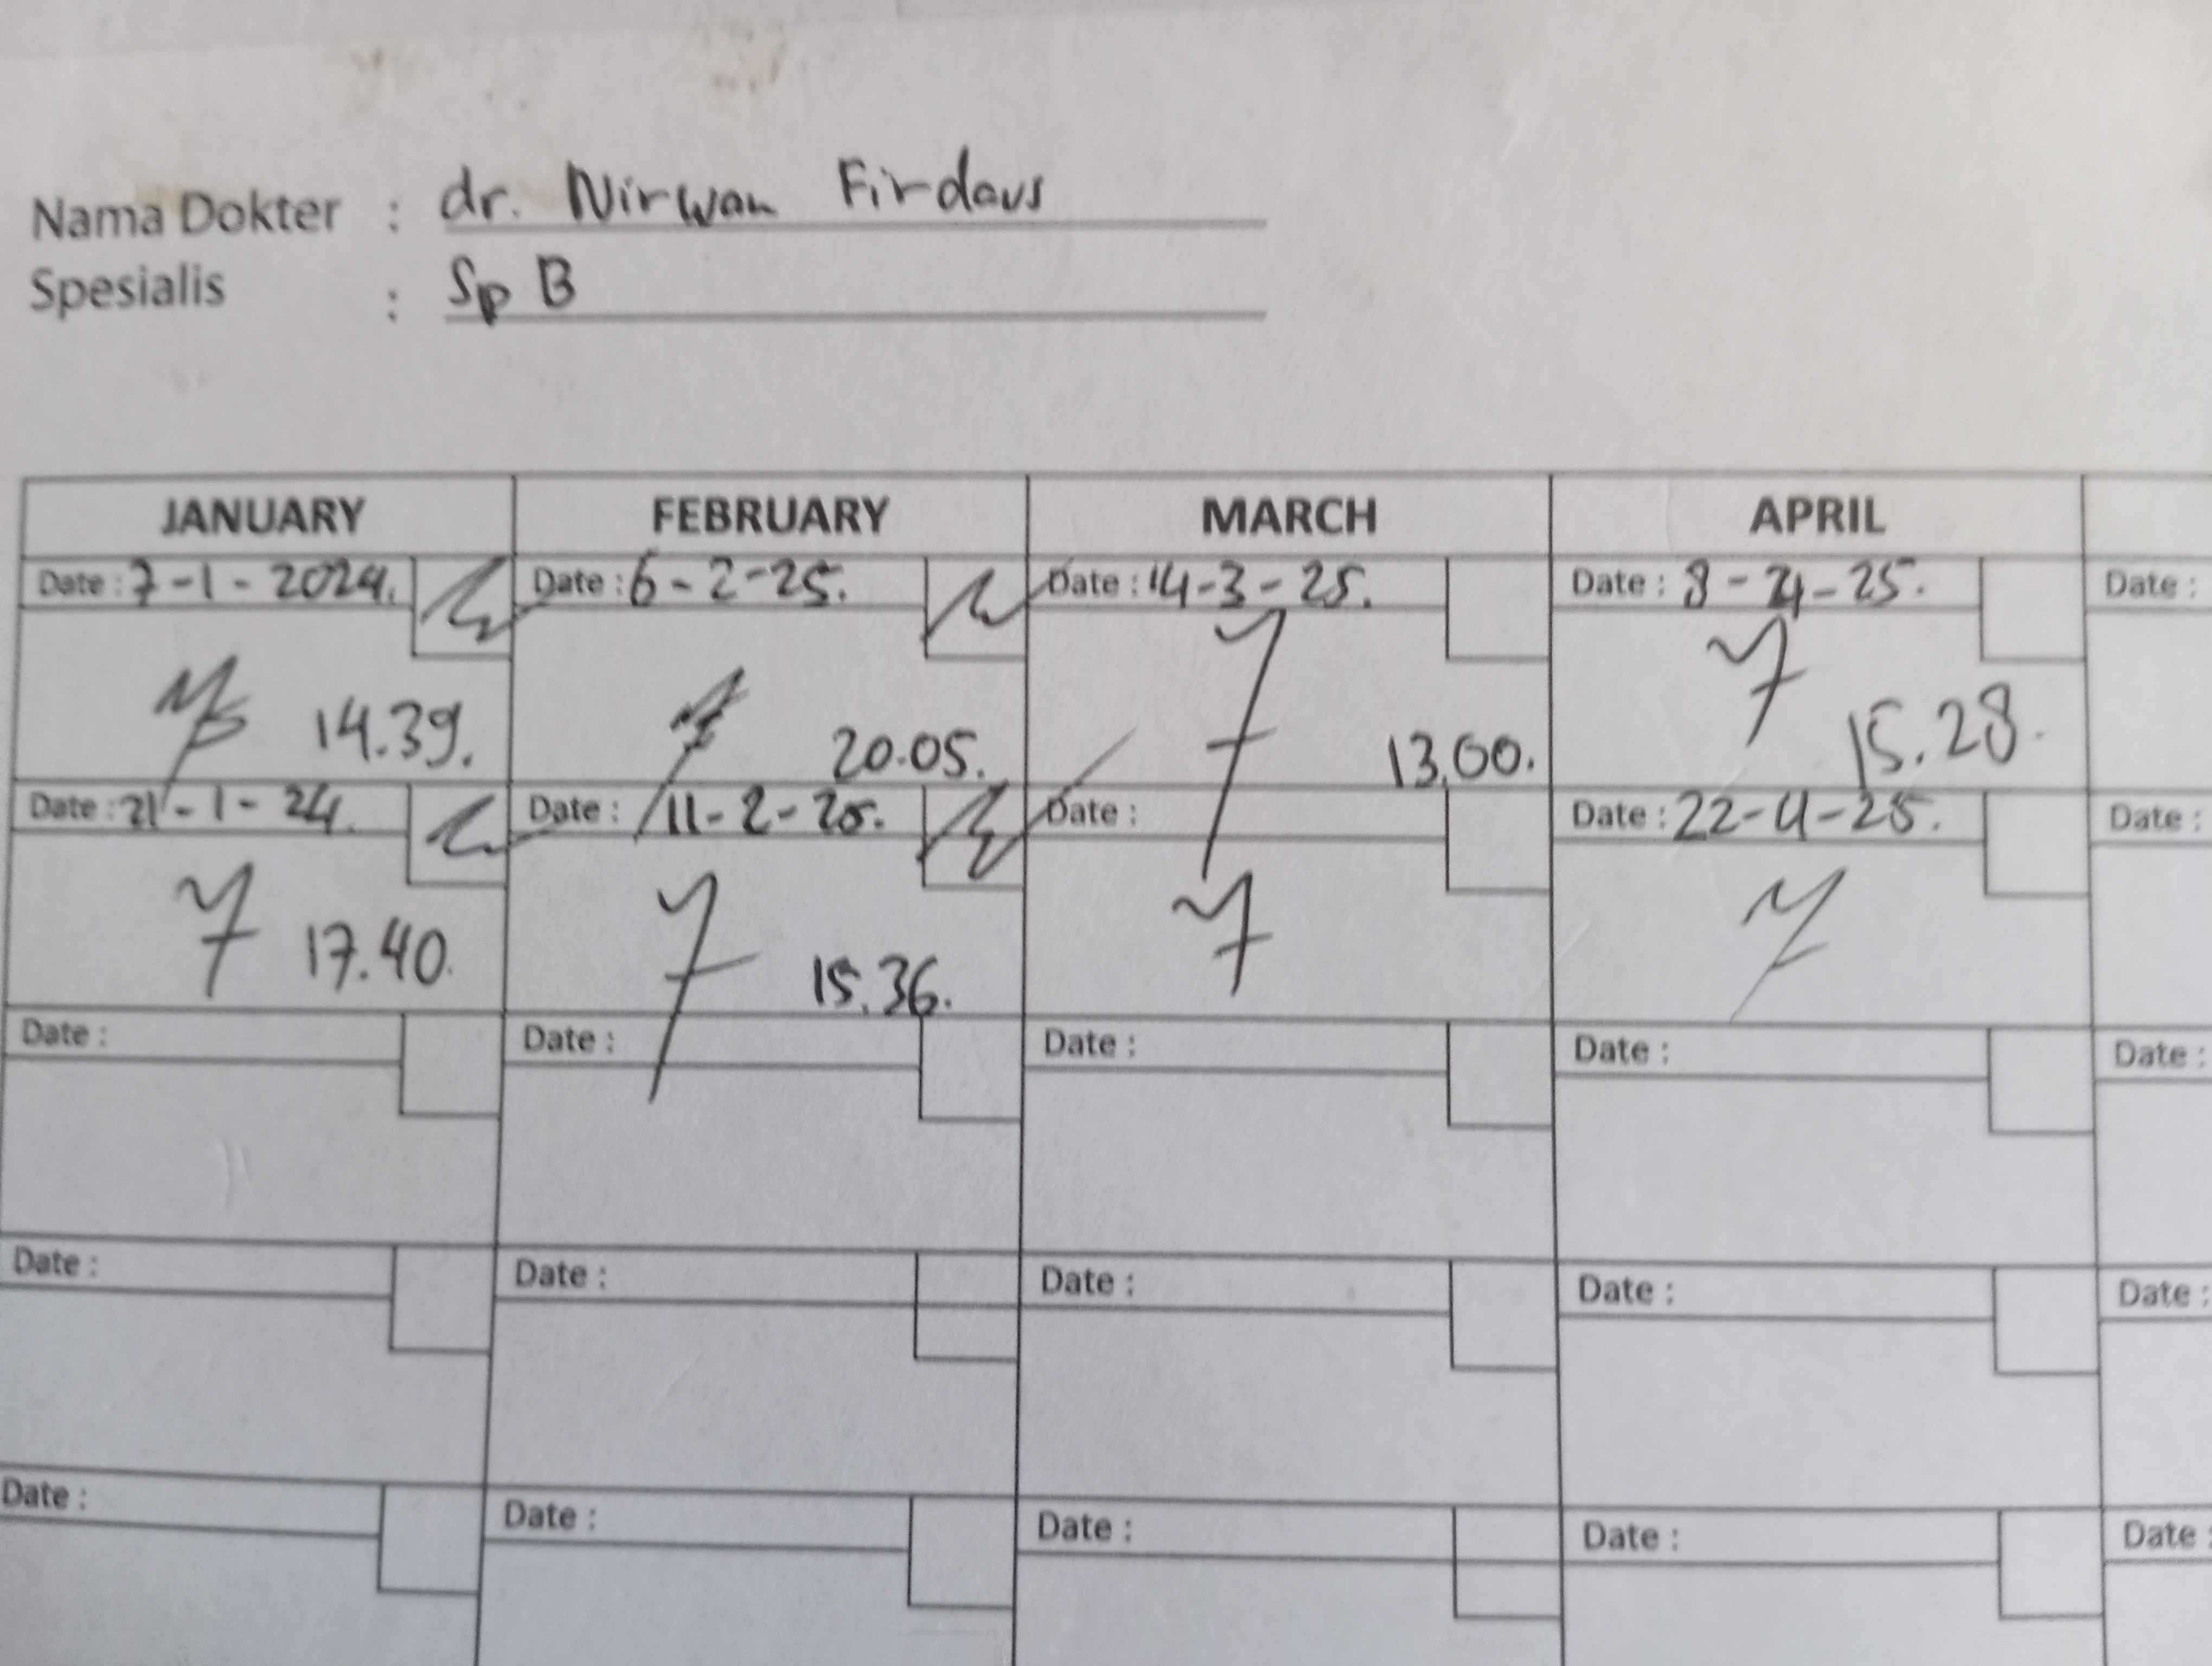 Nama Dokter : dr. Nirwan Firdaus
Spesialis : Sp B
JANUARY FEBRUARY MARCH APRIL
Date : 7-1-2024. Date : 6-2-25. Date : 14-3-25. Date : 8-4-25. Date :
14.39. 20.05. 13.00. 15.28.
Date : 21-1-24. Date : 11-2-25. Date : Date : 22-4-25. Date :
17.40. 15.36.
Date : Date : Date : Date : Date :
Date : Date : Date : Date : Date :
Date : Date : Date : Date : Date :